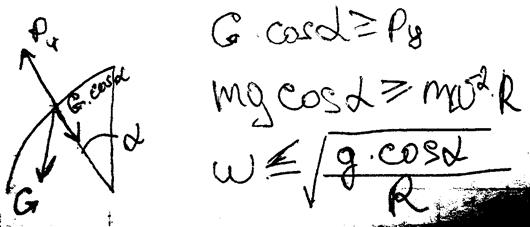 Py
G·cosα
α
G
G·cosα ≥ Py
mg cosα ≥ mv²·R
ω ≤ √(g·cosα / R)